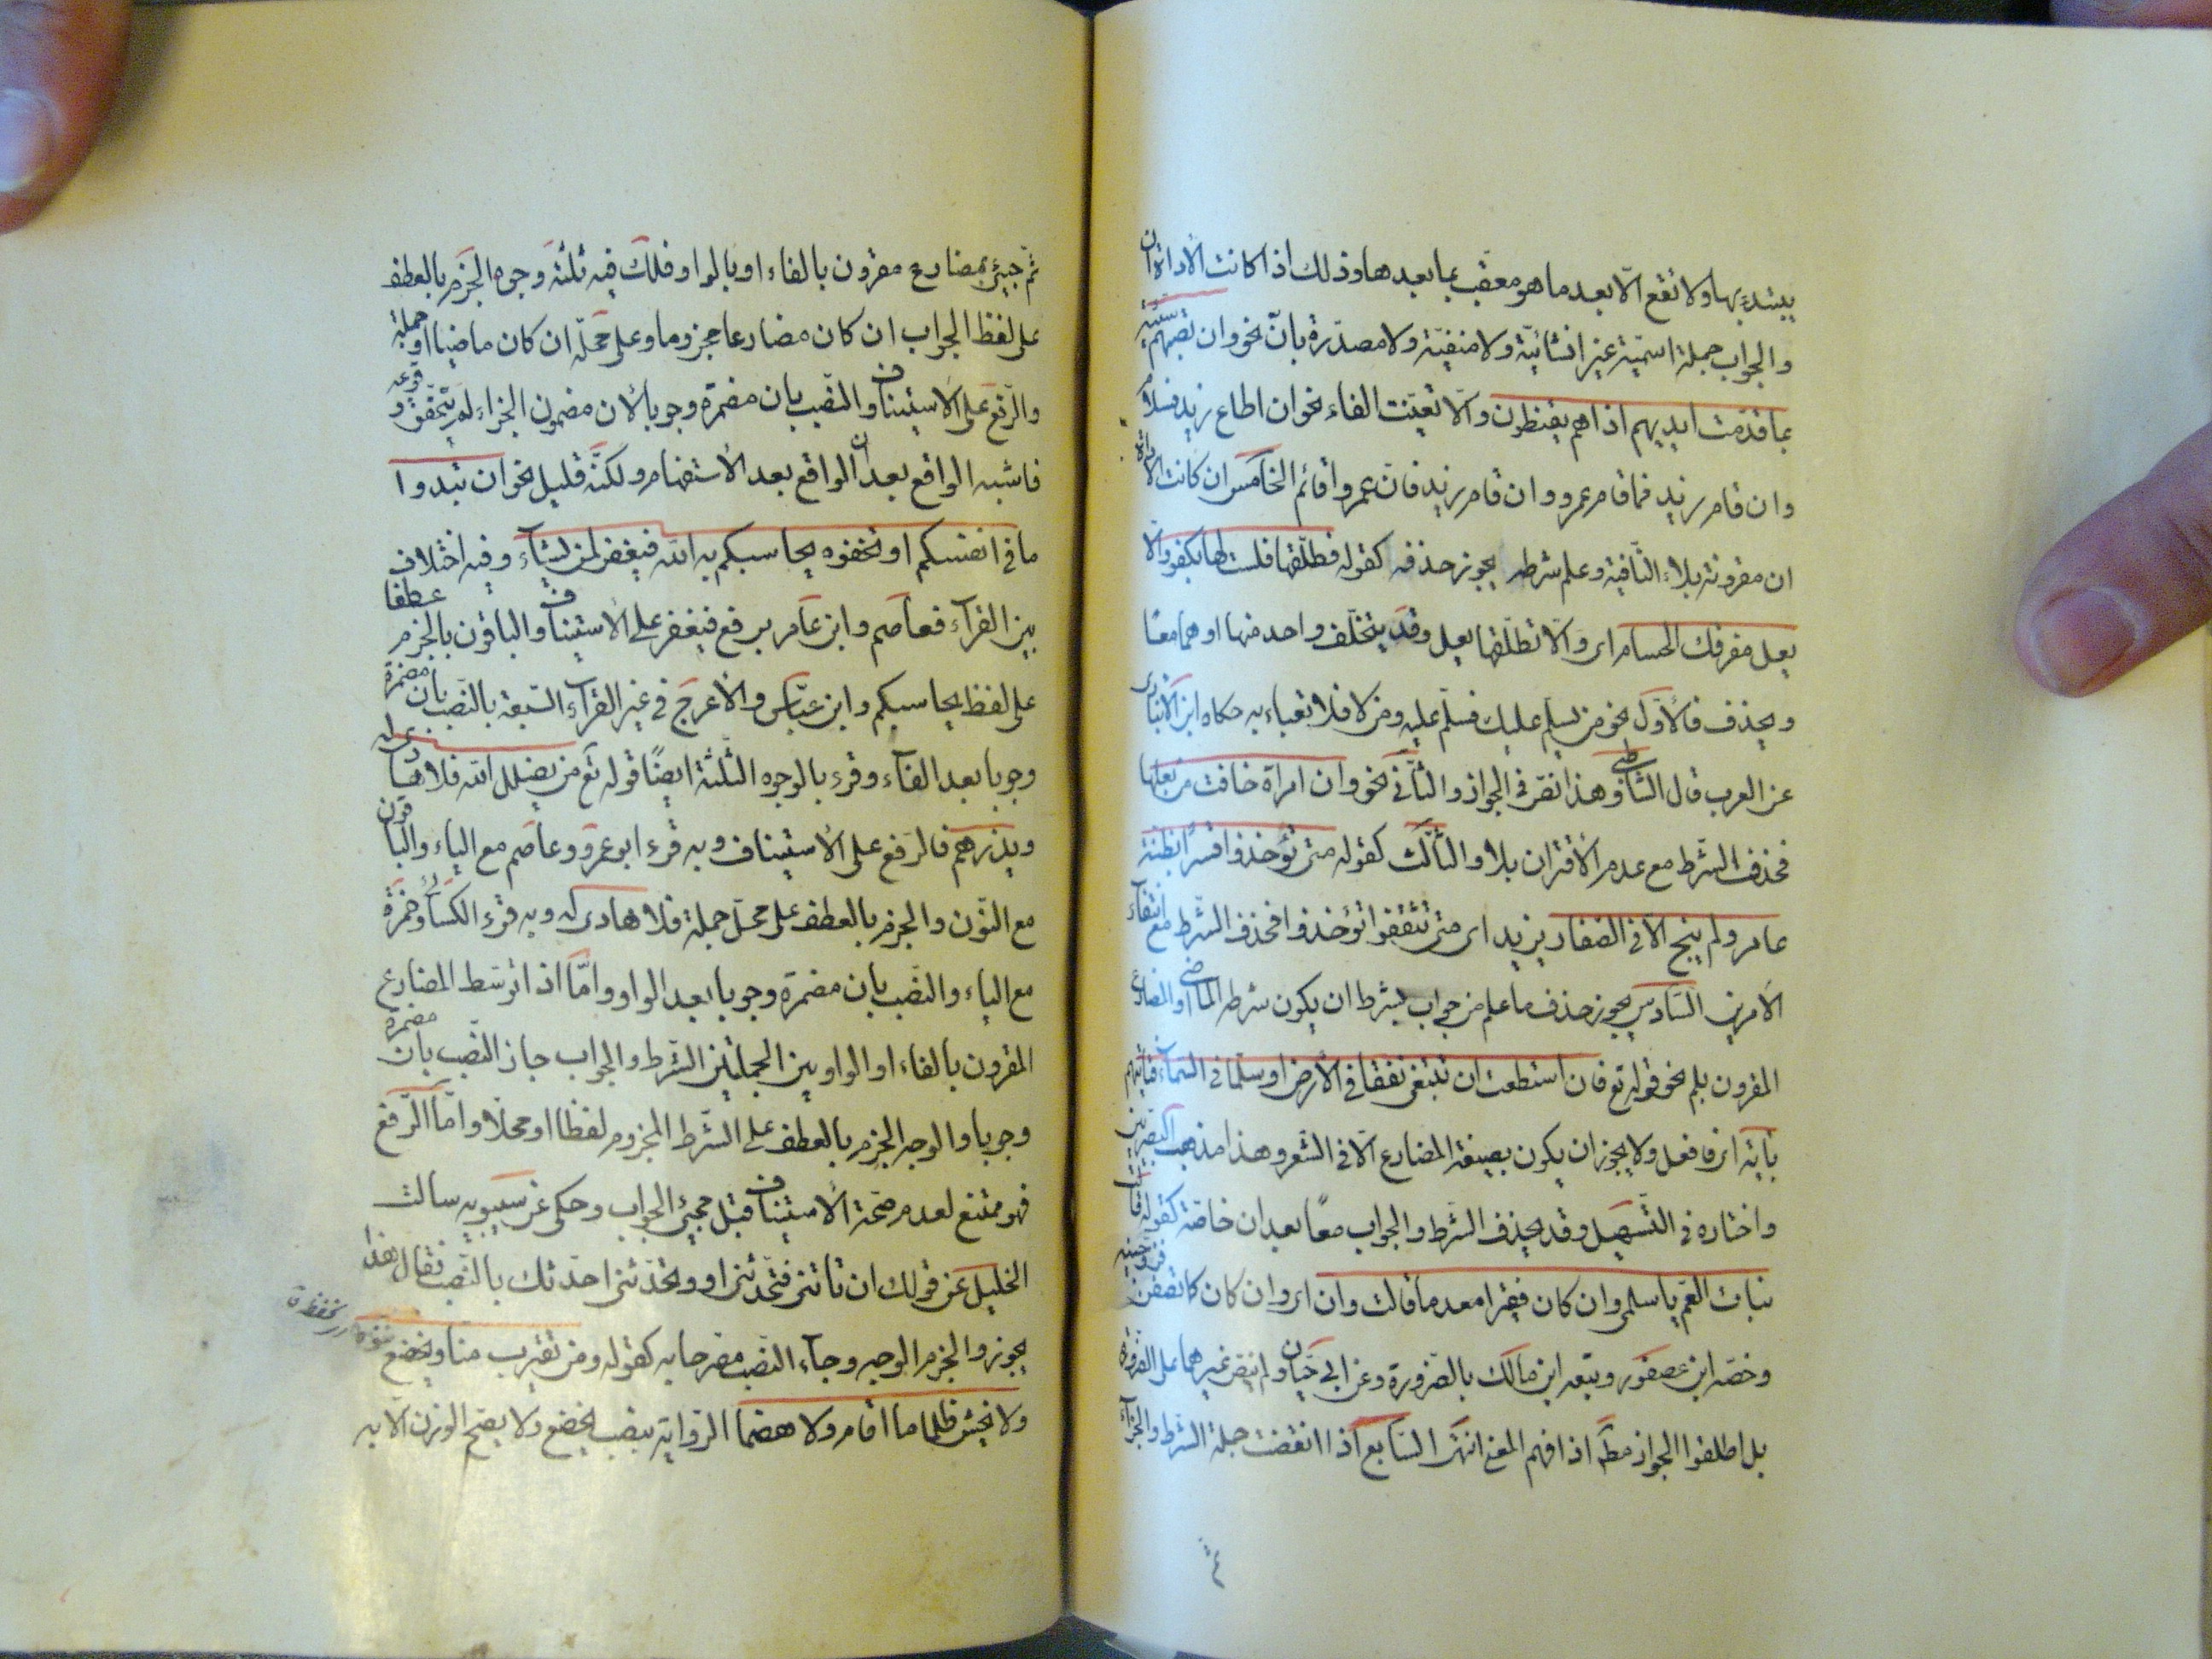 يبتدء بها ولا تقع الّا بعد ما هو معقّب بما بعدها وذلك اذا كانت الأداة ان
والجواب جملة اسميّة غير انشائيّة ولا منفيّة ولا مصدّرة بانّ نحو وان تصبهم سيّئة
بما قدّمت ايديهم اذا هم يقنطون والّا تعيّنت الفاء نحو ان اطاع زيد فسلام
وان قام زيد فما قام عمرو وان قام زيد فانّ عمروا قائم الخامس ان كانت الأداة
ان مقرونة بلاء النّافية وعلم شرطه يجوز حذفه كقوله فطلّقها فلست لها بكفو والّا
يعل مفرقك الحسام اى والّا تطلّقها يعل وقد يتخلّف واحد منها او هما معًا
ويحذف فالأوّل نحو من يسلم عليك فسلّم عليه ومن لا فلا تعباء به حكاه ابن الأنبارى
عن العرب قال الشاطبى وهذا نصّ فى الجواز والثّانى نحو وان امراة خافت من بعلها
فحذف الشّرط مع عدم الأقتران بلا والثّالث كقوله متى تؤخذوا قسرًا بظنّة
عامر ولم ينج الّا فى الصّفاد يزيد اى متى تثقفوا تؤخذوا فحذف الشّرط مع انتفاء
الأمرين السّادس يجوز حذف ما علم من جواب بشرط ان يكون شرطه الماضى او المضارع
المقرون بلم نحو قوله تع فان استطعت ان تبتغى نفقا فى الأرض او سلّما فى السّماء فتأتيهم
بايّة اى فافعل ولا يجوز ان يكون بصيغة المضارع الّا فى الشّعر وهذا مذهب البصريّين
واختاره فى التّسهيل وقد يحذف الشّرط والجواب معًا بعد ان خاصّة كقوله قالت
بنات العمّ يا سلمى وان كان فقيرا معدما قالت وان اى وان كان كا تصفن فزوّجنيه
وخصّه ابن عصفور وتبعه ابن مالك بالضّرورة وعن ابى حيّان ولم ينصّ غيرهما على الضّرورة
بل اطلقوا الجواز مطّ اذا فهم المعنى انتهى السّابع اذا انقضت جملة الشّرط والجزآء
ثمّ جيئ بمضارع مقرون بالفاء او بالواو فلك فيه ثلثة وجوه الجزم بالعطف
على لفظ الجواب ان كان مضارعا مجزوما وعلى محلّه ان كان ماضيا او جملة
والرّفع على الأستيناف والنّصب بان مضمرة وجوبا لأن مضمون الجزاء لم يتحقّق وقوعه
فاشبه الواقع بعد ان الواقع بعد الأستفهام ولكنّه قليل نحو ان تبدوا
ما فى انفسكم او تخفوه يحاسبكم به الله فيغفر لمن يشآء وفيه اختلاف
بين القرآء فعاصم وابن عامر برفع فيغفر على الأستيناف والباقون بالجزم عطفا
على لفظ يحاسبكم وابن عبّاس والأعرج فى غير القرآء السّبعة بالنّصب بان مضمرة
وجوبا بعد الفآء وقرء بالوجوه الثّلثة ايضًا قوله تع من يضلل الله فلا هادى له
ويذرهم فالرّفع على الأستيناف وبه قرء ابو عمرو وعاصم مع الياء والباقون
مع النّون والجزم بالعطف على محلّ جملة فلا هادى له وبه قرء الكسائى وحمزة
مع الياء والنّصب بان مضمرة وجوبا بعد الواو وامّا اذا توسّط المضارع
المقرون بالفاء او الواو بين الجملتين الشّرط والجواب جاز النّصب بان مضمرة
وجوبا والوجه الجزم بالعطف على الشّرط المجزوم لفظا او محلّا وامّا الرّفع
فهو ممتنع لعدم صحّة الأستيناف قبل مجيئ الجواب وحكى عن سيبويه سالت
الخليل عن قولك ان تاتنى فتحدّثنى او وتحدّثنى احدّثك بالنّصب فقال هذا
يجوز والجزم الوجه وجآء النّصب مصرحا به كقوله ومن تقترب منّا ويخضع نؤوه
ولا يخش ظلما ما اقام ولا هضما الرّواية بنصب يخضع ولا يصحّ الوزن الّا به